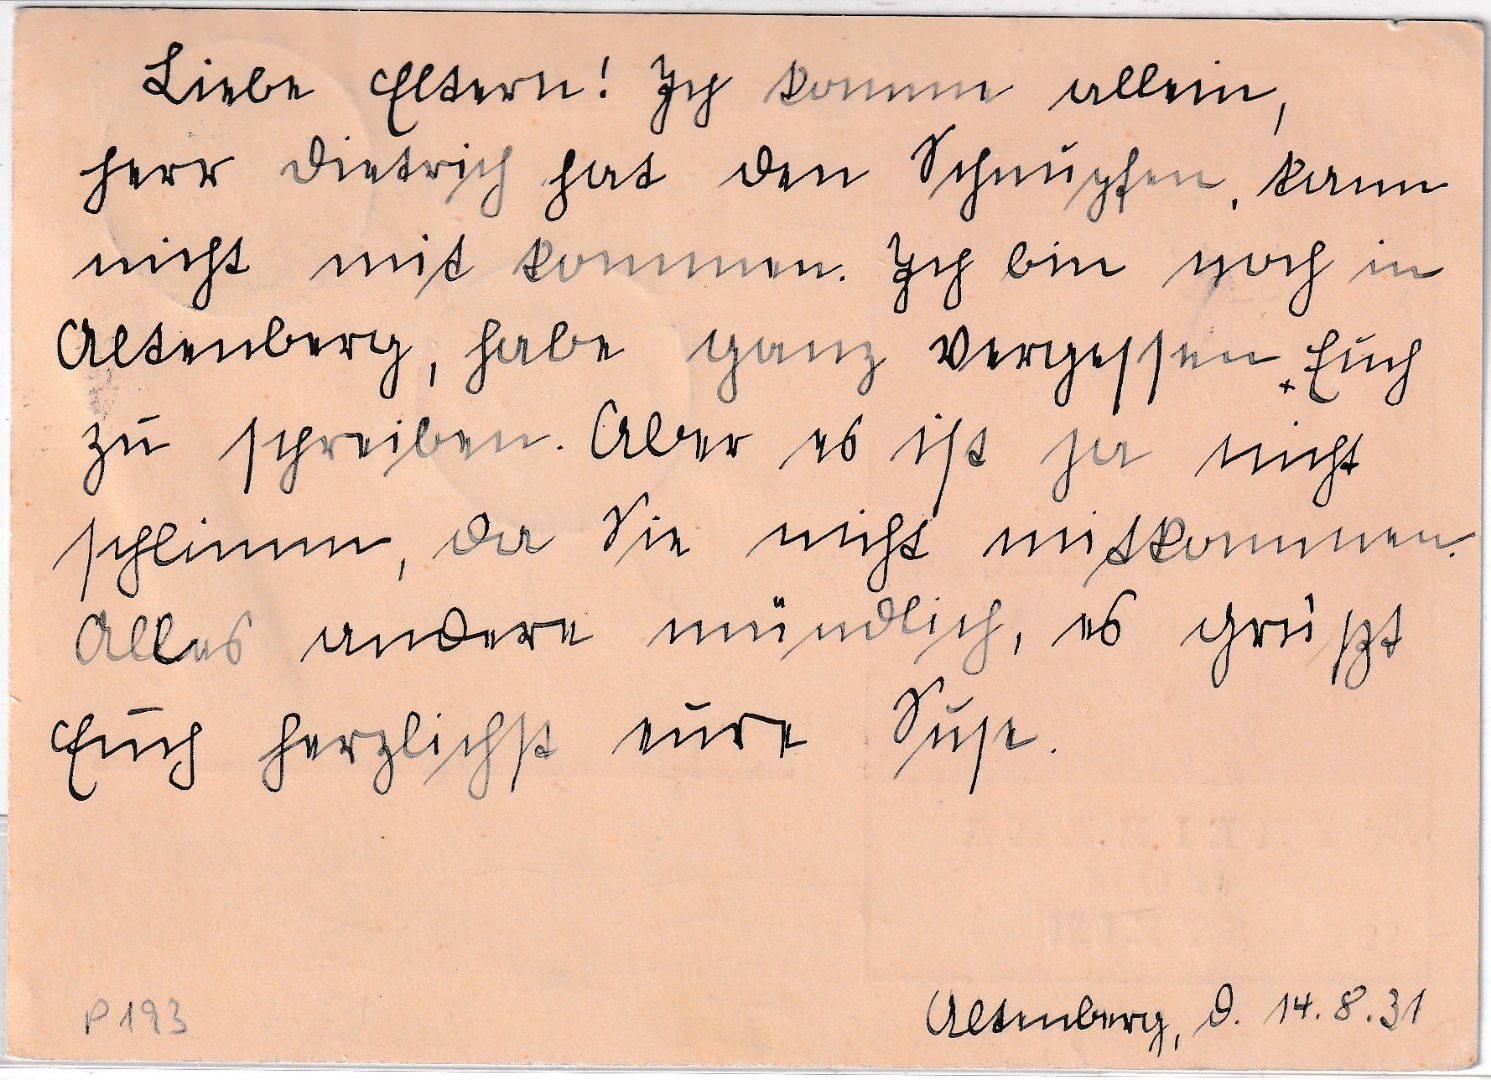 Liebe Eltern! Ich komme allein,
Herr Dietrich hat den Schnupfen, kann
nicht mit kommen. Ich bin noch in
Altenberg, habe ganz vergessen Euch
zu schreiben. Aber es ist ja nicht
schlimm, da Sie nicht mitkommen.
Alles andere mündlich, es grüßt
Euch herzlichst eure Suse.
P 193
Altenberg, d. 14.8.31